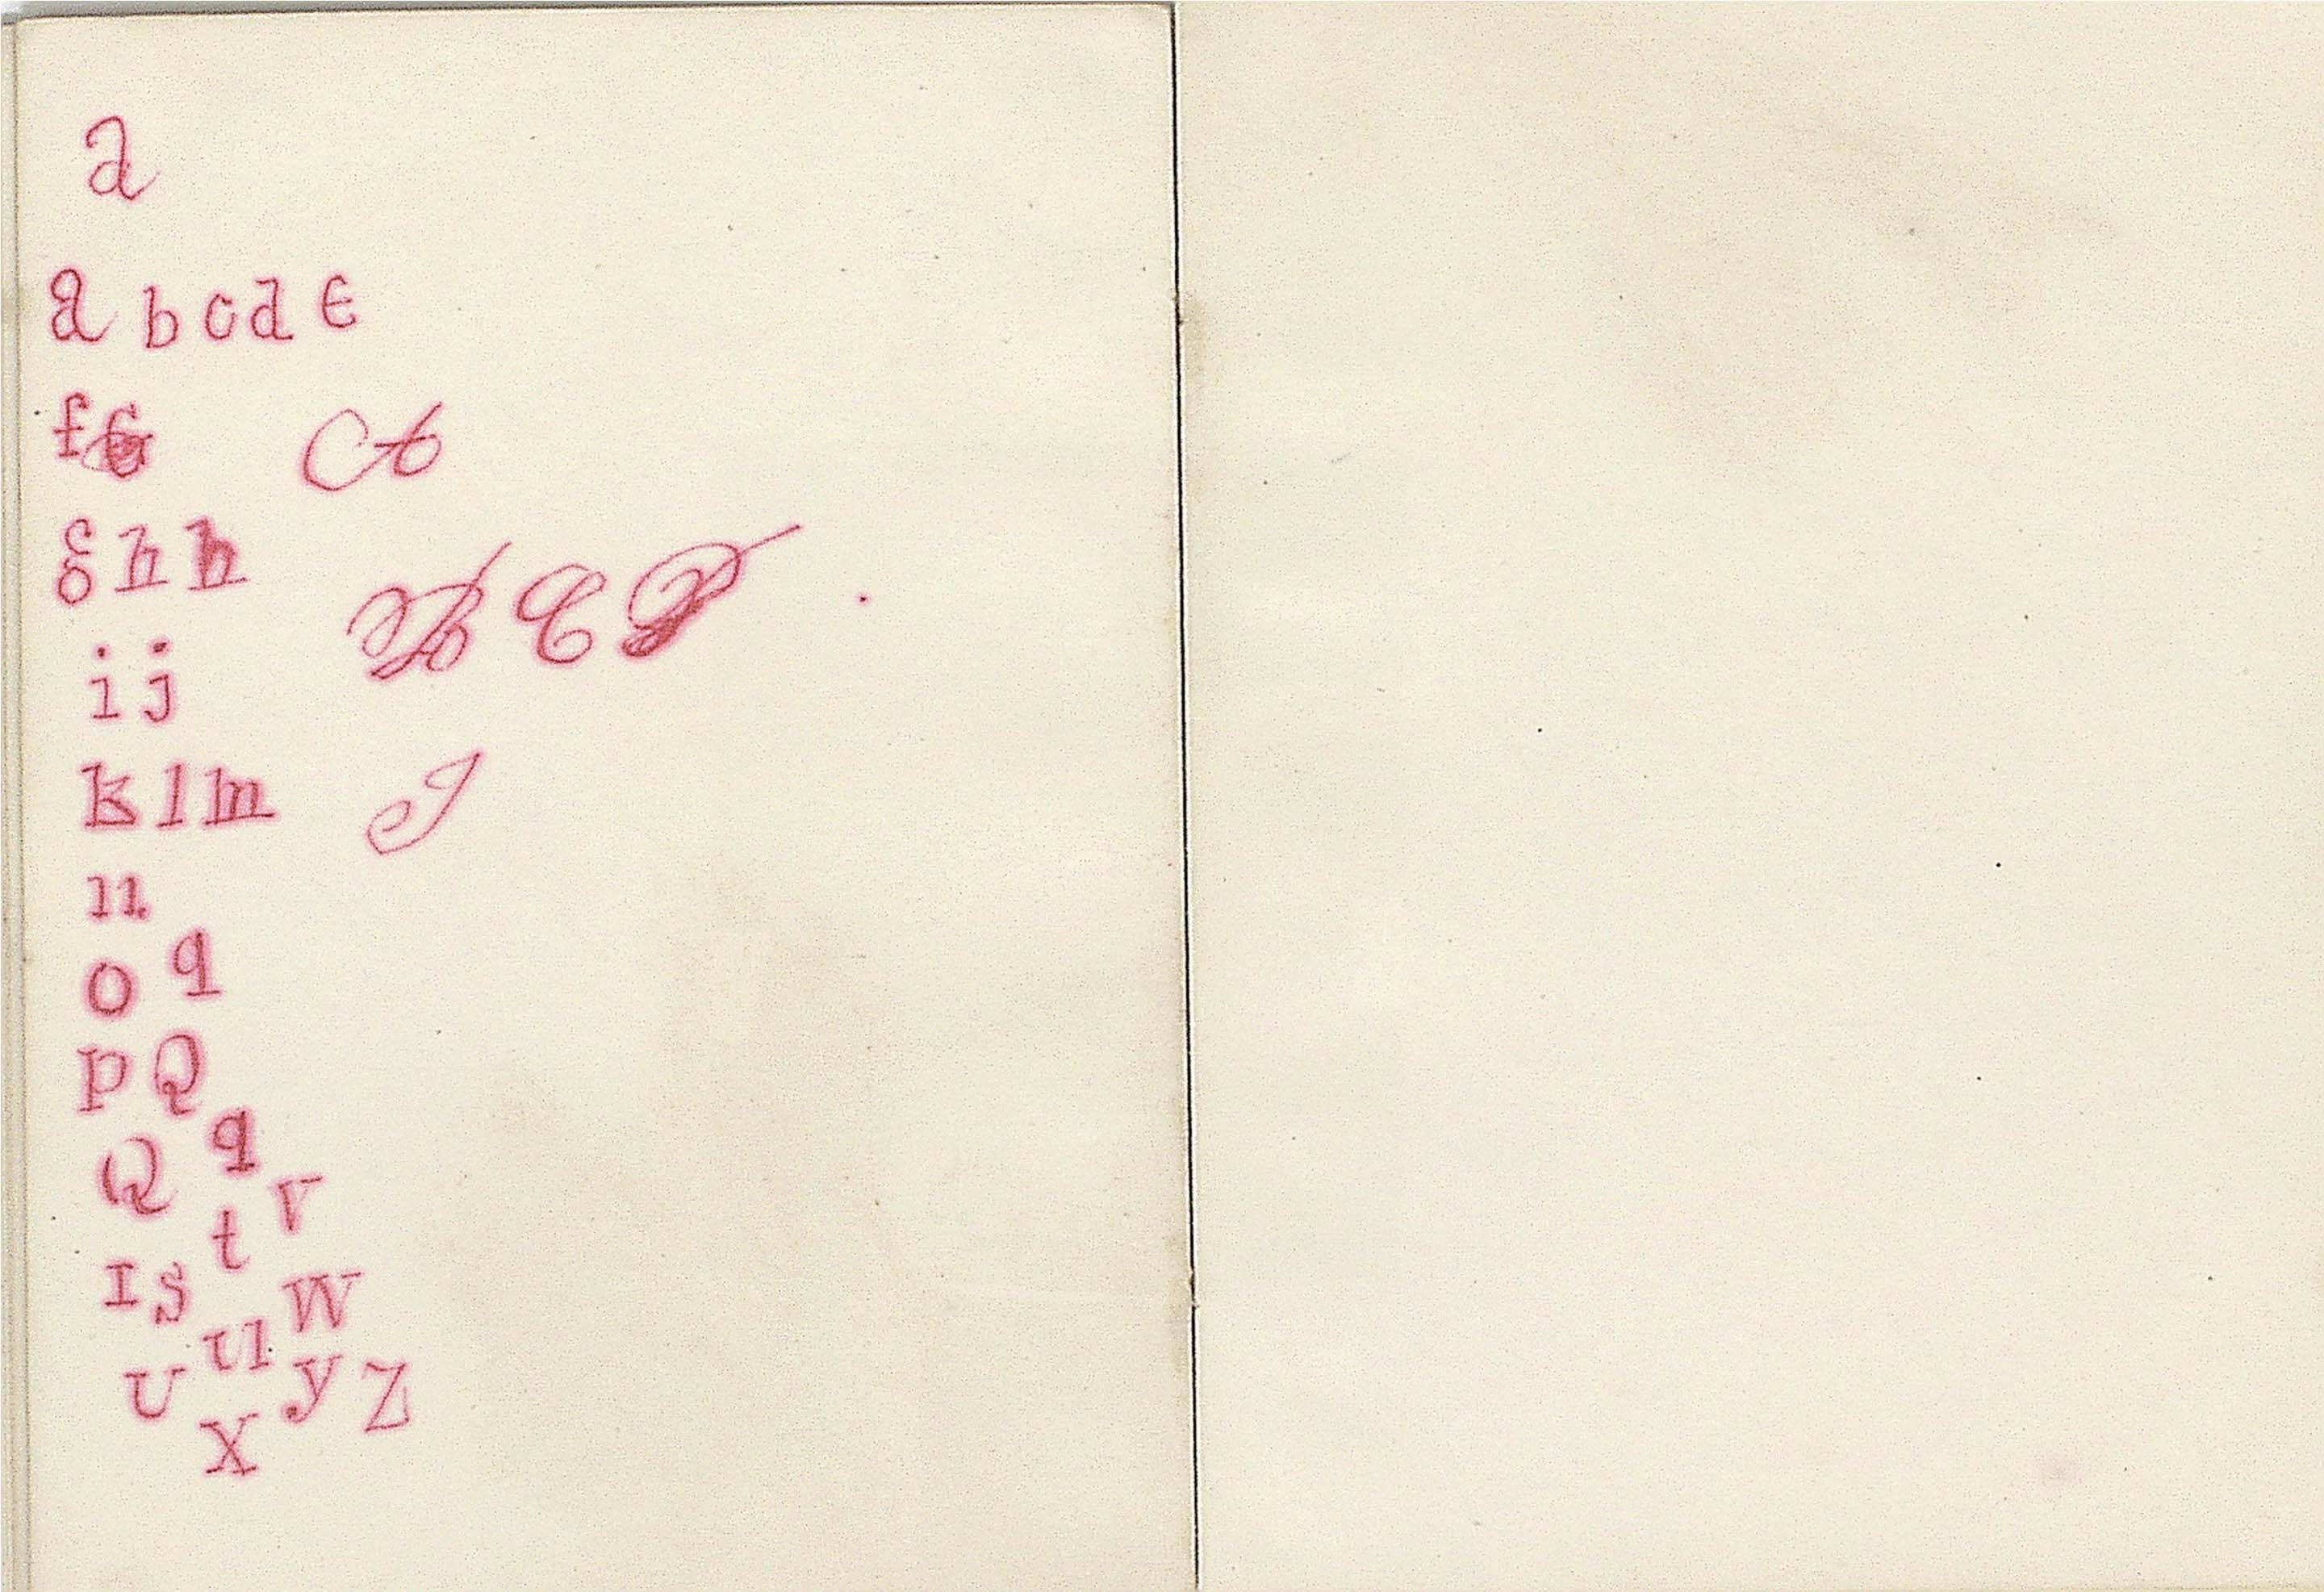 a
a b c d e
f
A
g h h
B C D
i j
k l m
J
n
o q
p Q
Q q
t V
I S
W
u
U
y Z
X